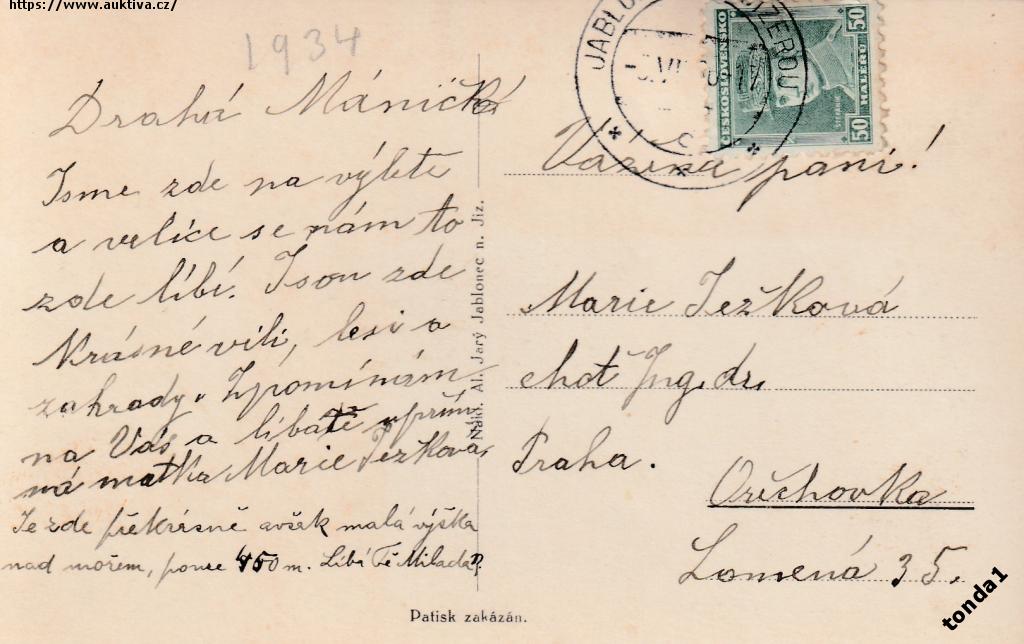 https://www.auktiva.cz/
1934
Drahá Máničko
Jsme zde na výletě
a velice se nám to
zde líbí. Json zde
Krásné vili, lesi a
zahrady. Zpomínám
na Vás a líbatě upřím-
ná matka Marie Ježková,
Je zde překrásně avšak malá výška
nad mořem, pouze 450 m. Líbá Tě Milada
Nákl. Al. Jarý Jablonec n. Jiz.
Patisk zakázán.
ČESKOSLOVENSKO
50 HALÉŘŮ 50
Vážená paní!
Marie Ježková
choť Ing. dr.
Praha.
Ořechovka
Lomená 35.
tonda1